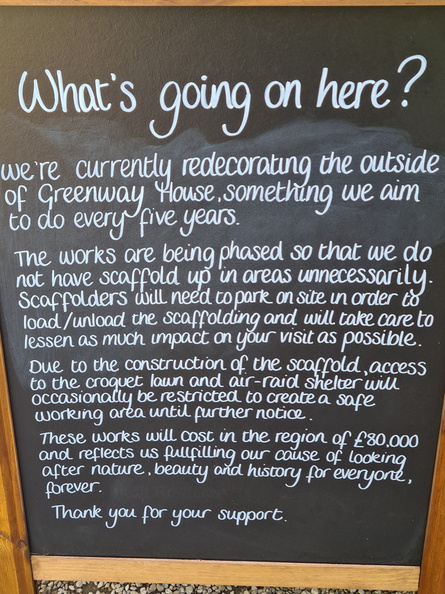 What's going on here?
We're currently redecorating the outside
of Greenway House, something we aim
to do every five years.
The works are being phased so that we do
not have scaffold up in areas unnecessarily.
Scaffolders will need to park on site in order to
load/unload the scaffolding and will take care to
lessen as much impact on your visit as possible.
Due to the construction of the scaffold, access
to the croquet lawn and air-raid shelter will
occasionally be restricted to create a safe
working area until further notice.
These works will cost in the region of £80,000
and reflects us fullfilling our cause of looking
after nature, beauty and history for everyone,
forever.
Thank you for your support.